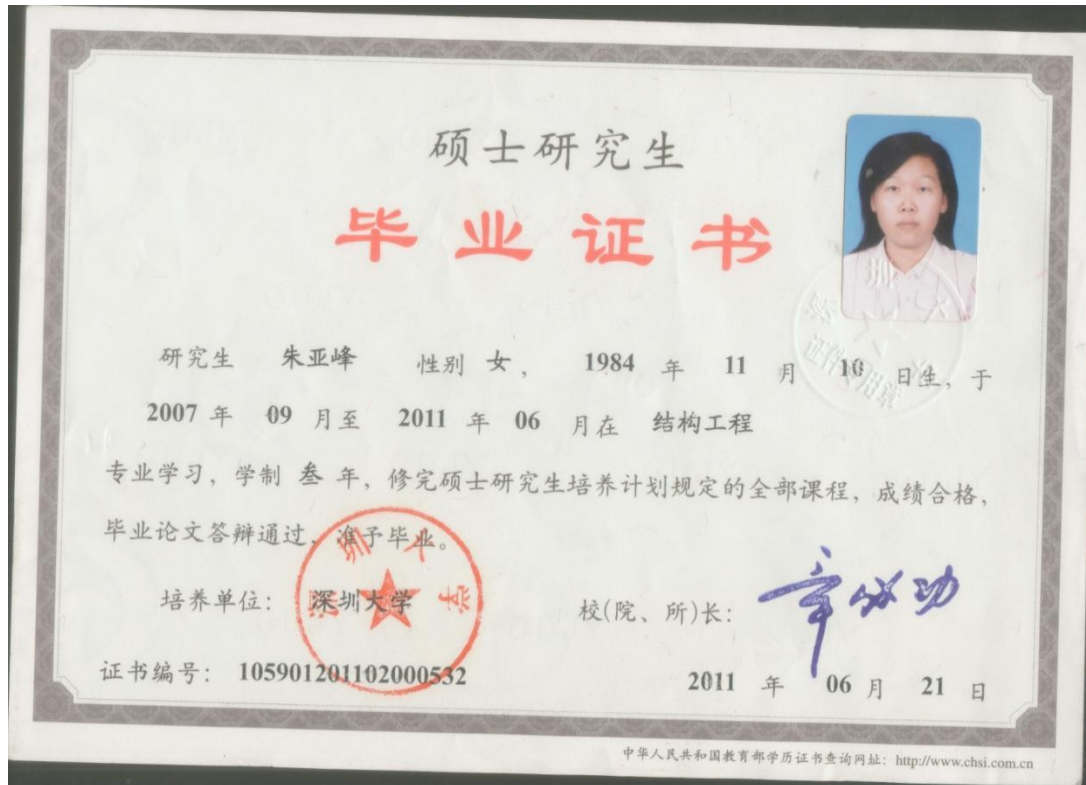 硕士研究生
毕业证书
研究生 朱亚峰 性别 女， 1984 年 11 月 10 日生，于
2007 年 09 月至 2011 年 06 月在 结构工程
专业学习，学制 叁 年，修完硕士研究生培养计划规定的全部课程，成绩合格，
毕业论文答辩通过，准予毕业。
培养单位： 深圳大学
深圳大学
校(院、所)长： 章必功
证书编号： 105901201102000532
2011 年 06 月 21 日
中华人民共和国教育部学历证书查询网址：http://www.chsi.com.cn
深圳大学
证件专用章